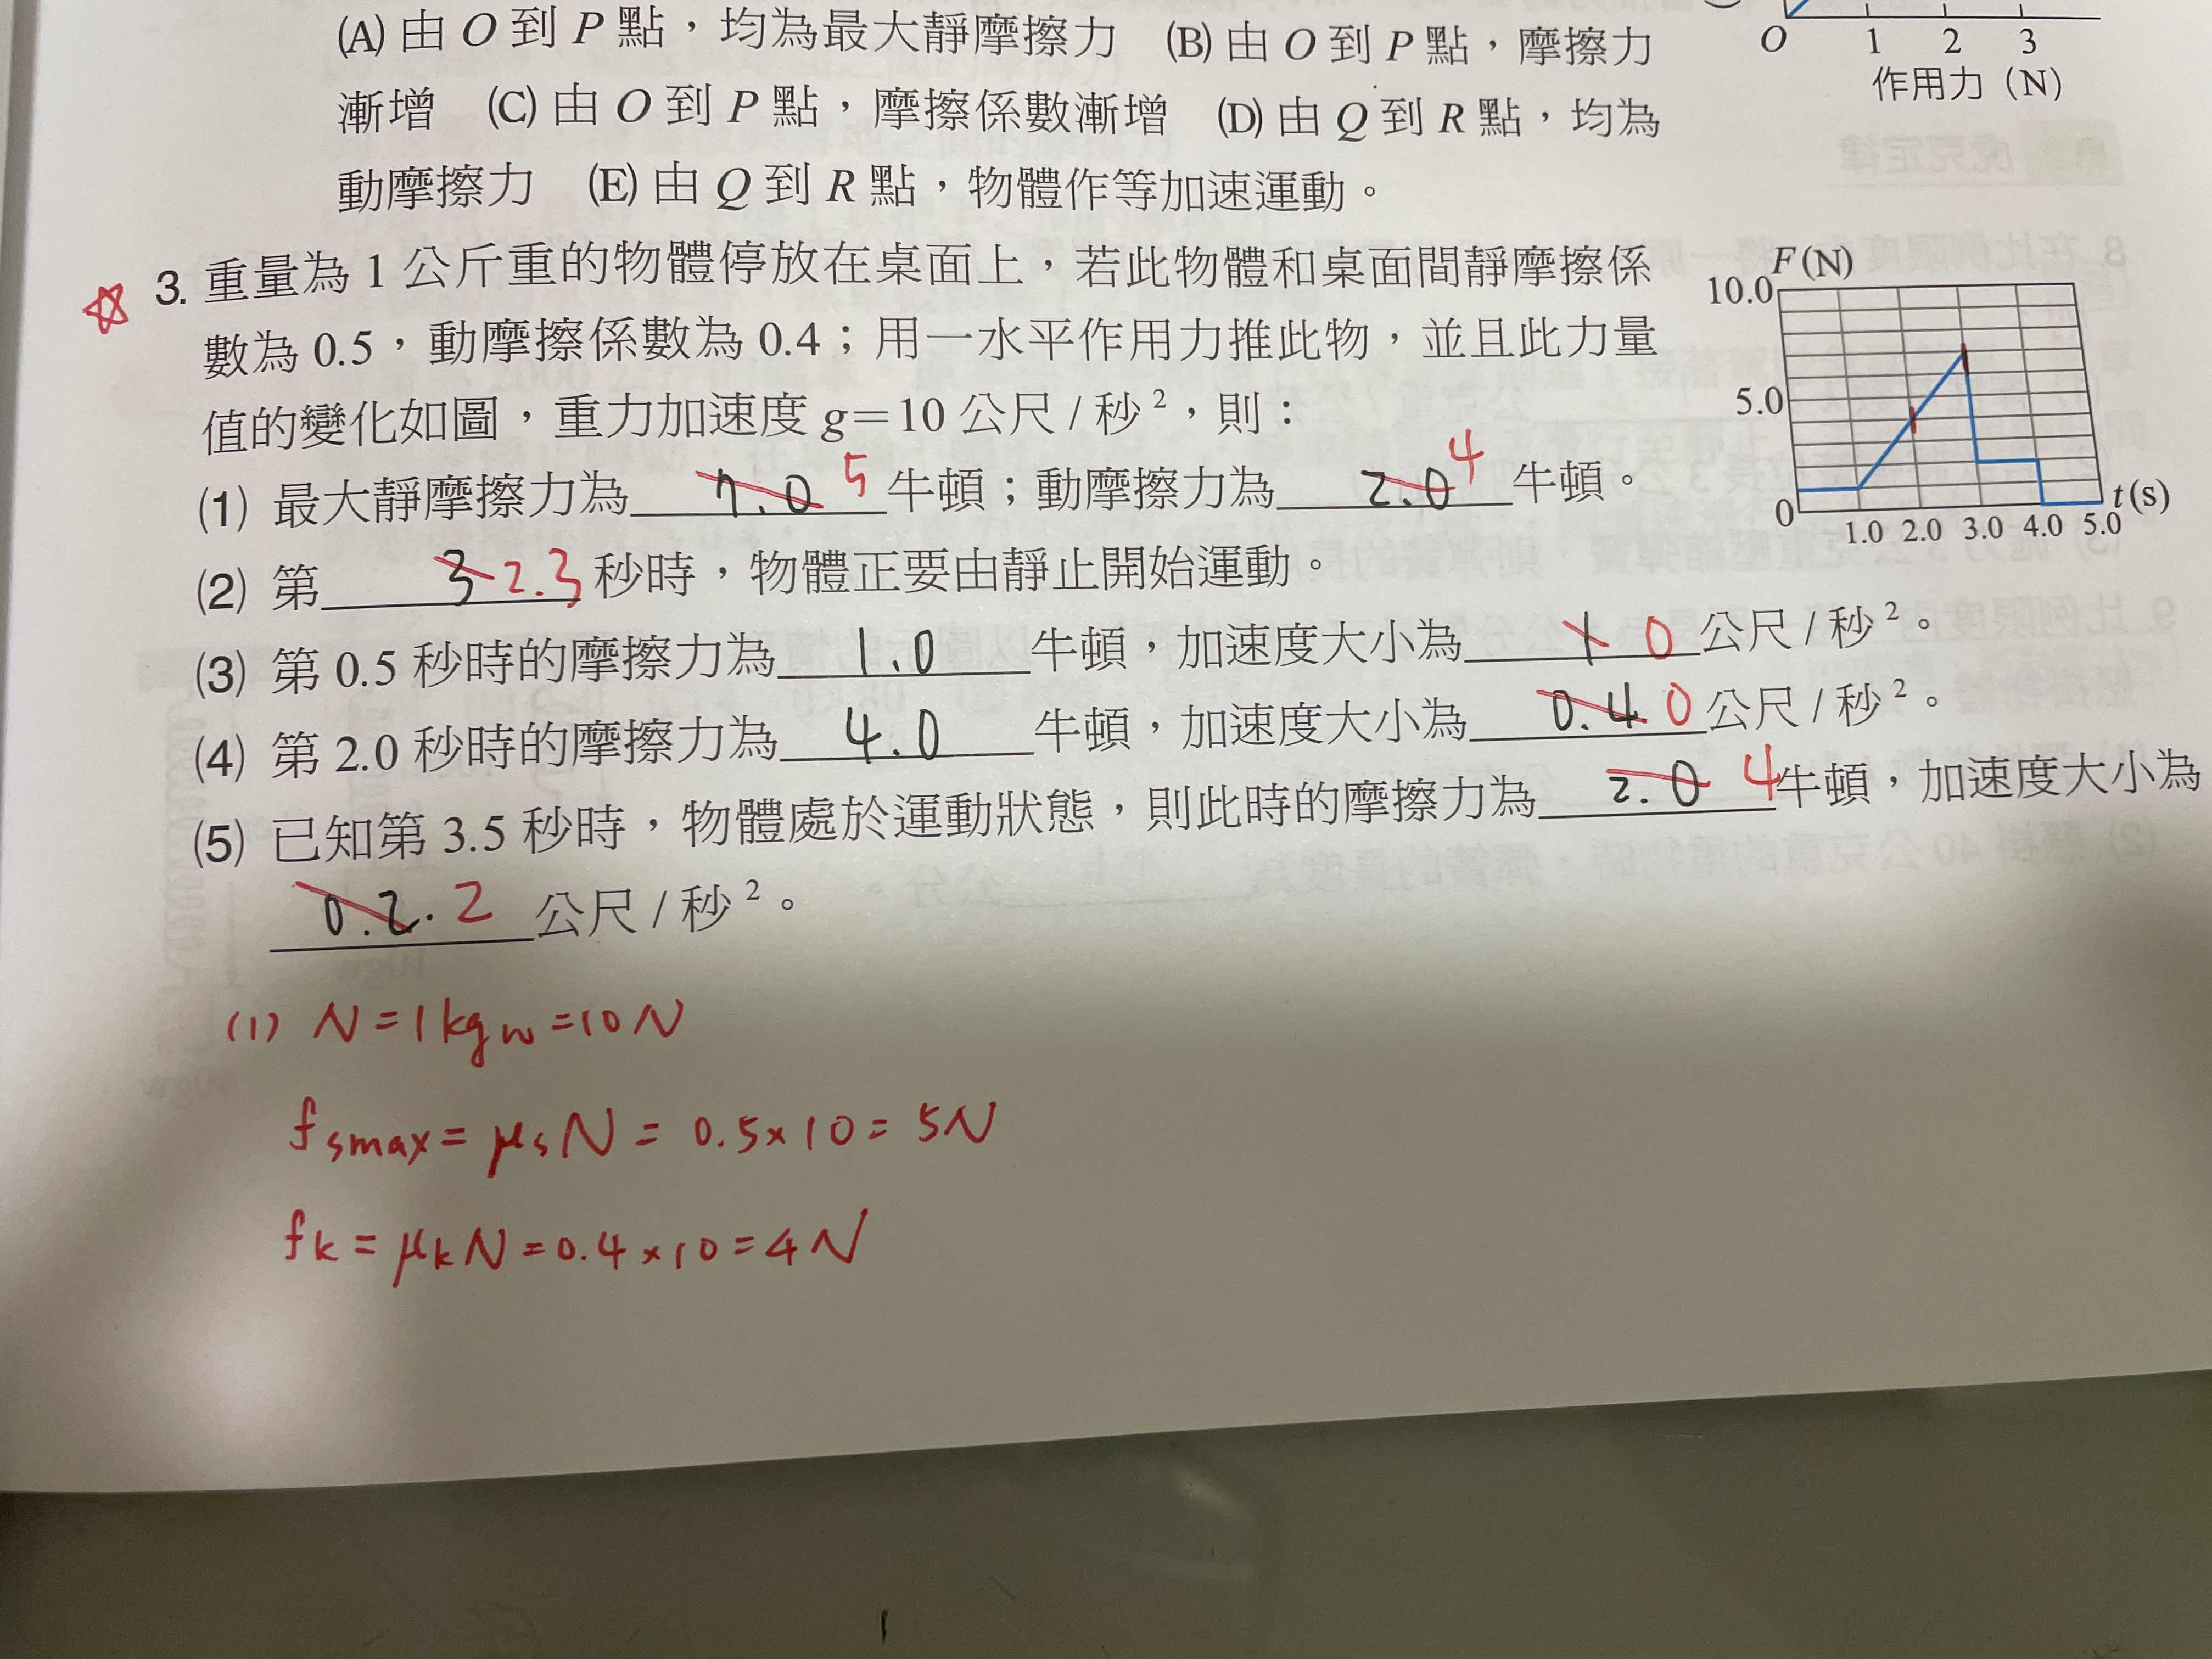 (A) 由 O 到 P 點，均為最大靜摩擦力 (B) 由 O 到 P 點，摩擦力
漸增 (C) 由 O 到 P 點，摩擦係數漸增 (D) 由 Q 到 R 點，均為
動摩擦力 (E) 由 Q 到 R 點，物體作等加速運動。
O 1 2 3
作用力（N）
3. 重量為 1 公斤重的物體停放在桌面上，若此物體和桌面間靜摩擦係
數為 0.5，動摩擦係數為 0.4；用一水平作用力推此物，並且此力量
值的變化如圖，重力加速度 g＝10 公尺 / 秒²，則：
F(N)
10.0
5.0
0
1.0 2.0 3.0 4.0 5.0
t(s)
(1) 最大靜摩擦力為 7.0 5 牛頓；動摩擦力為 2.0 4 牛頓。
(2) 第 3 2.3 秒時，物體正要由靜止開始運動。
(3) 第 0.5 秒時的摩擦力為 1.0 牛頓，加速度大小為 1 0 公尺 / 秒²。
(4) 第 2.0 秒時的摩擦力為 4.0 牛頓，加速度大小為 0.4 0 公尺 / 秒²。
(5) 已知第 3.5 秒時，物體處於運動狀態，則此時的摩擦力為 2.0 4 牛頓，加速度大小為
0.2. 2 公尺 / 秒²。
(1) N = 1 kgw = 10 N
fsmax = μsN = 0.5×10 = 5N
fk = μkN = 0.4×10 = 4N